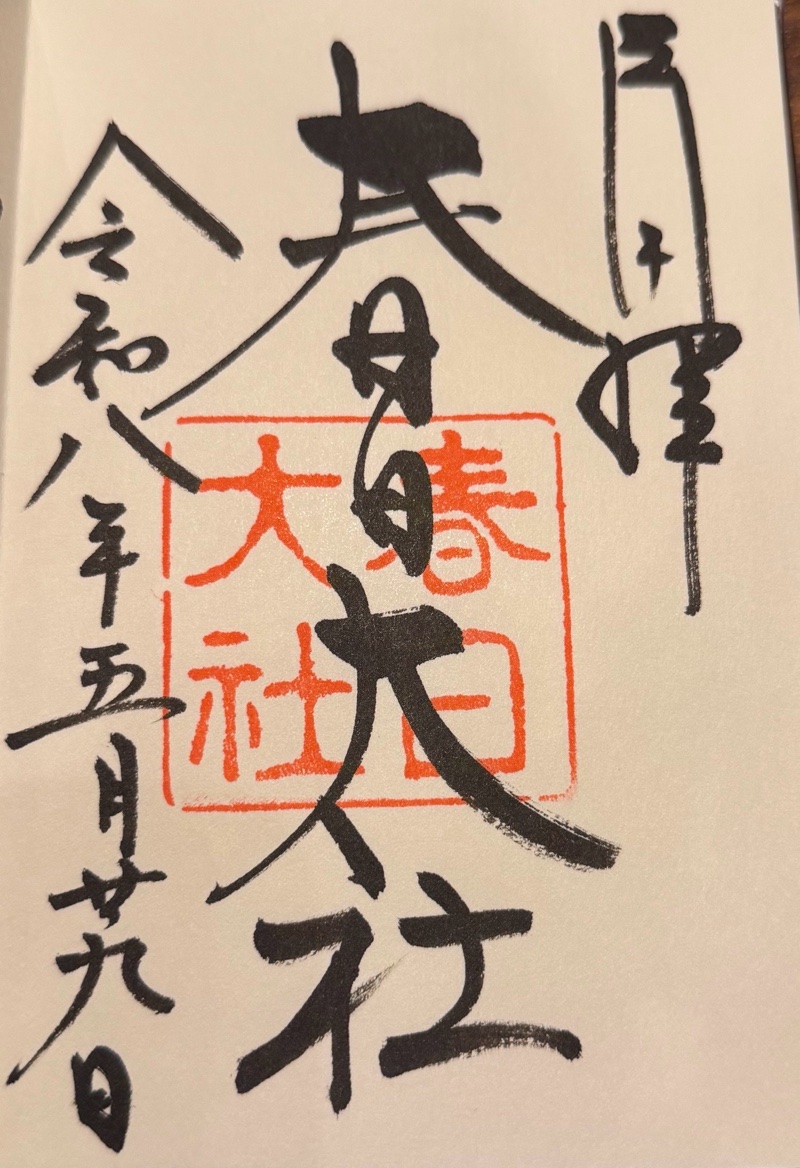 奉拝
春日大社
春日
大社
令和八年五月廿九日